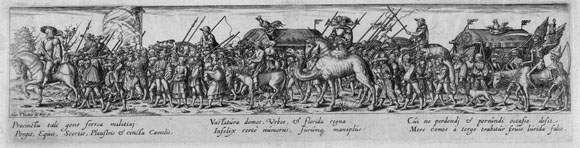 Procinctu tali gens ferrea militat;
Pompa, Equis, Scortis, Plaustris & cincta Camelis.
Vastatura domos, Urbes, & florida regna
Infelix certe numerus, furumq maniplus
Cui ne perdendi & pereundi occasio desit
Mors comes a tergo trahitur lurida falce